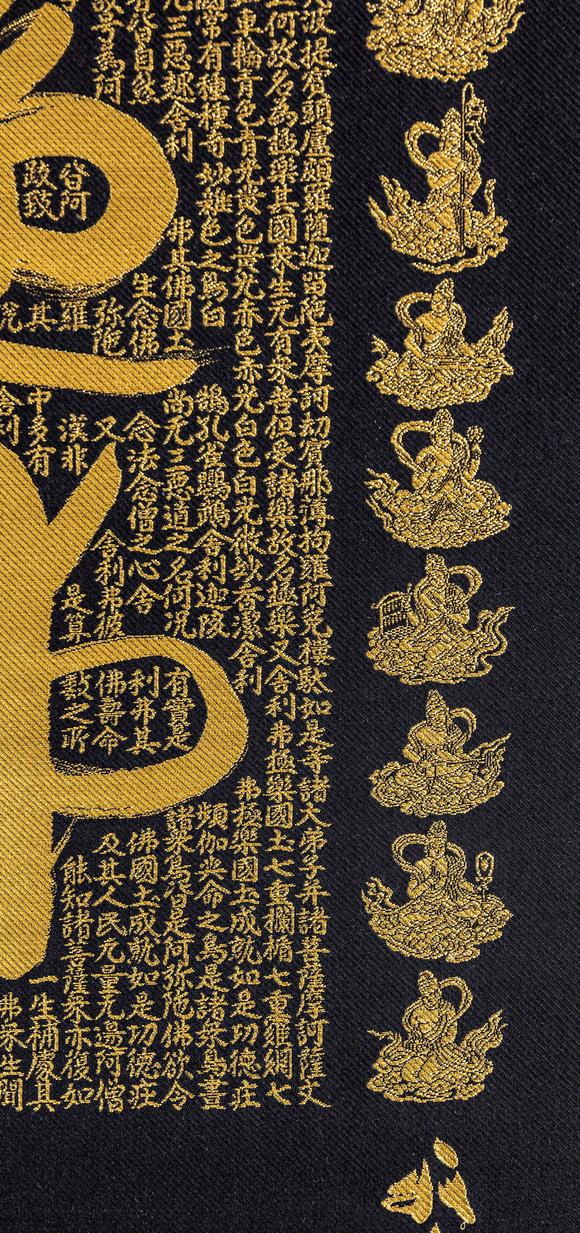 波提賓頭盧頗羅墮迦留陀夷摩訶劫賓那薄拘羅阿㝹樓駄如是等諸大弟子并諸菩薩摩訶薩文
何故名為極樂其國衆生无有衆苦但受諸樂故名極樂又舍利弗極樂國土七重欄楯七重羅網七
車輪青色青光黄色黄光赤色赤光白色白光微妙香潔舍利弗極樂國土成就如是功德莊
常有種種奇妙雜色之鳥白鵠孔雀鸚鵡舍利迦陵頻伽共命之鳥是諸衆鳥晝
无三惡趣舍利弗其佛國土尚无三惡道之名何况有實是諸衆鳥皆是阿弥陀佛欲令
皆自然生念佛念法念僧之心舍利弗其佛國土成就如是功德莊
故号為阿弥陀又舍利弗彼佛壽命及其人民无量无邊阿僧
皆阿羅漢非是算數之所能知諸菩薩衆亦復如
跋致其中多有一生補處其
舍利弗衆生聞